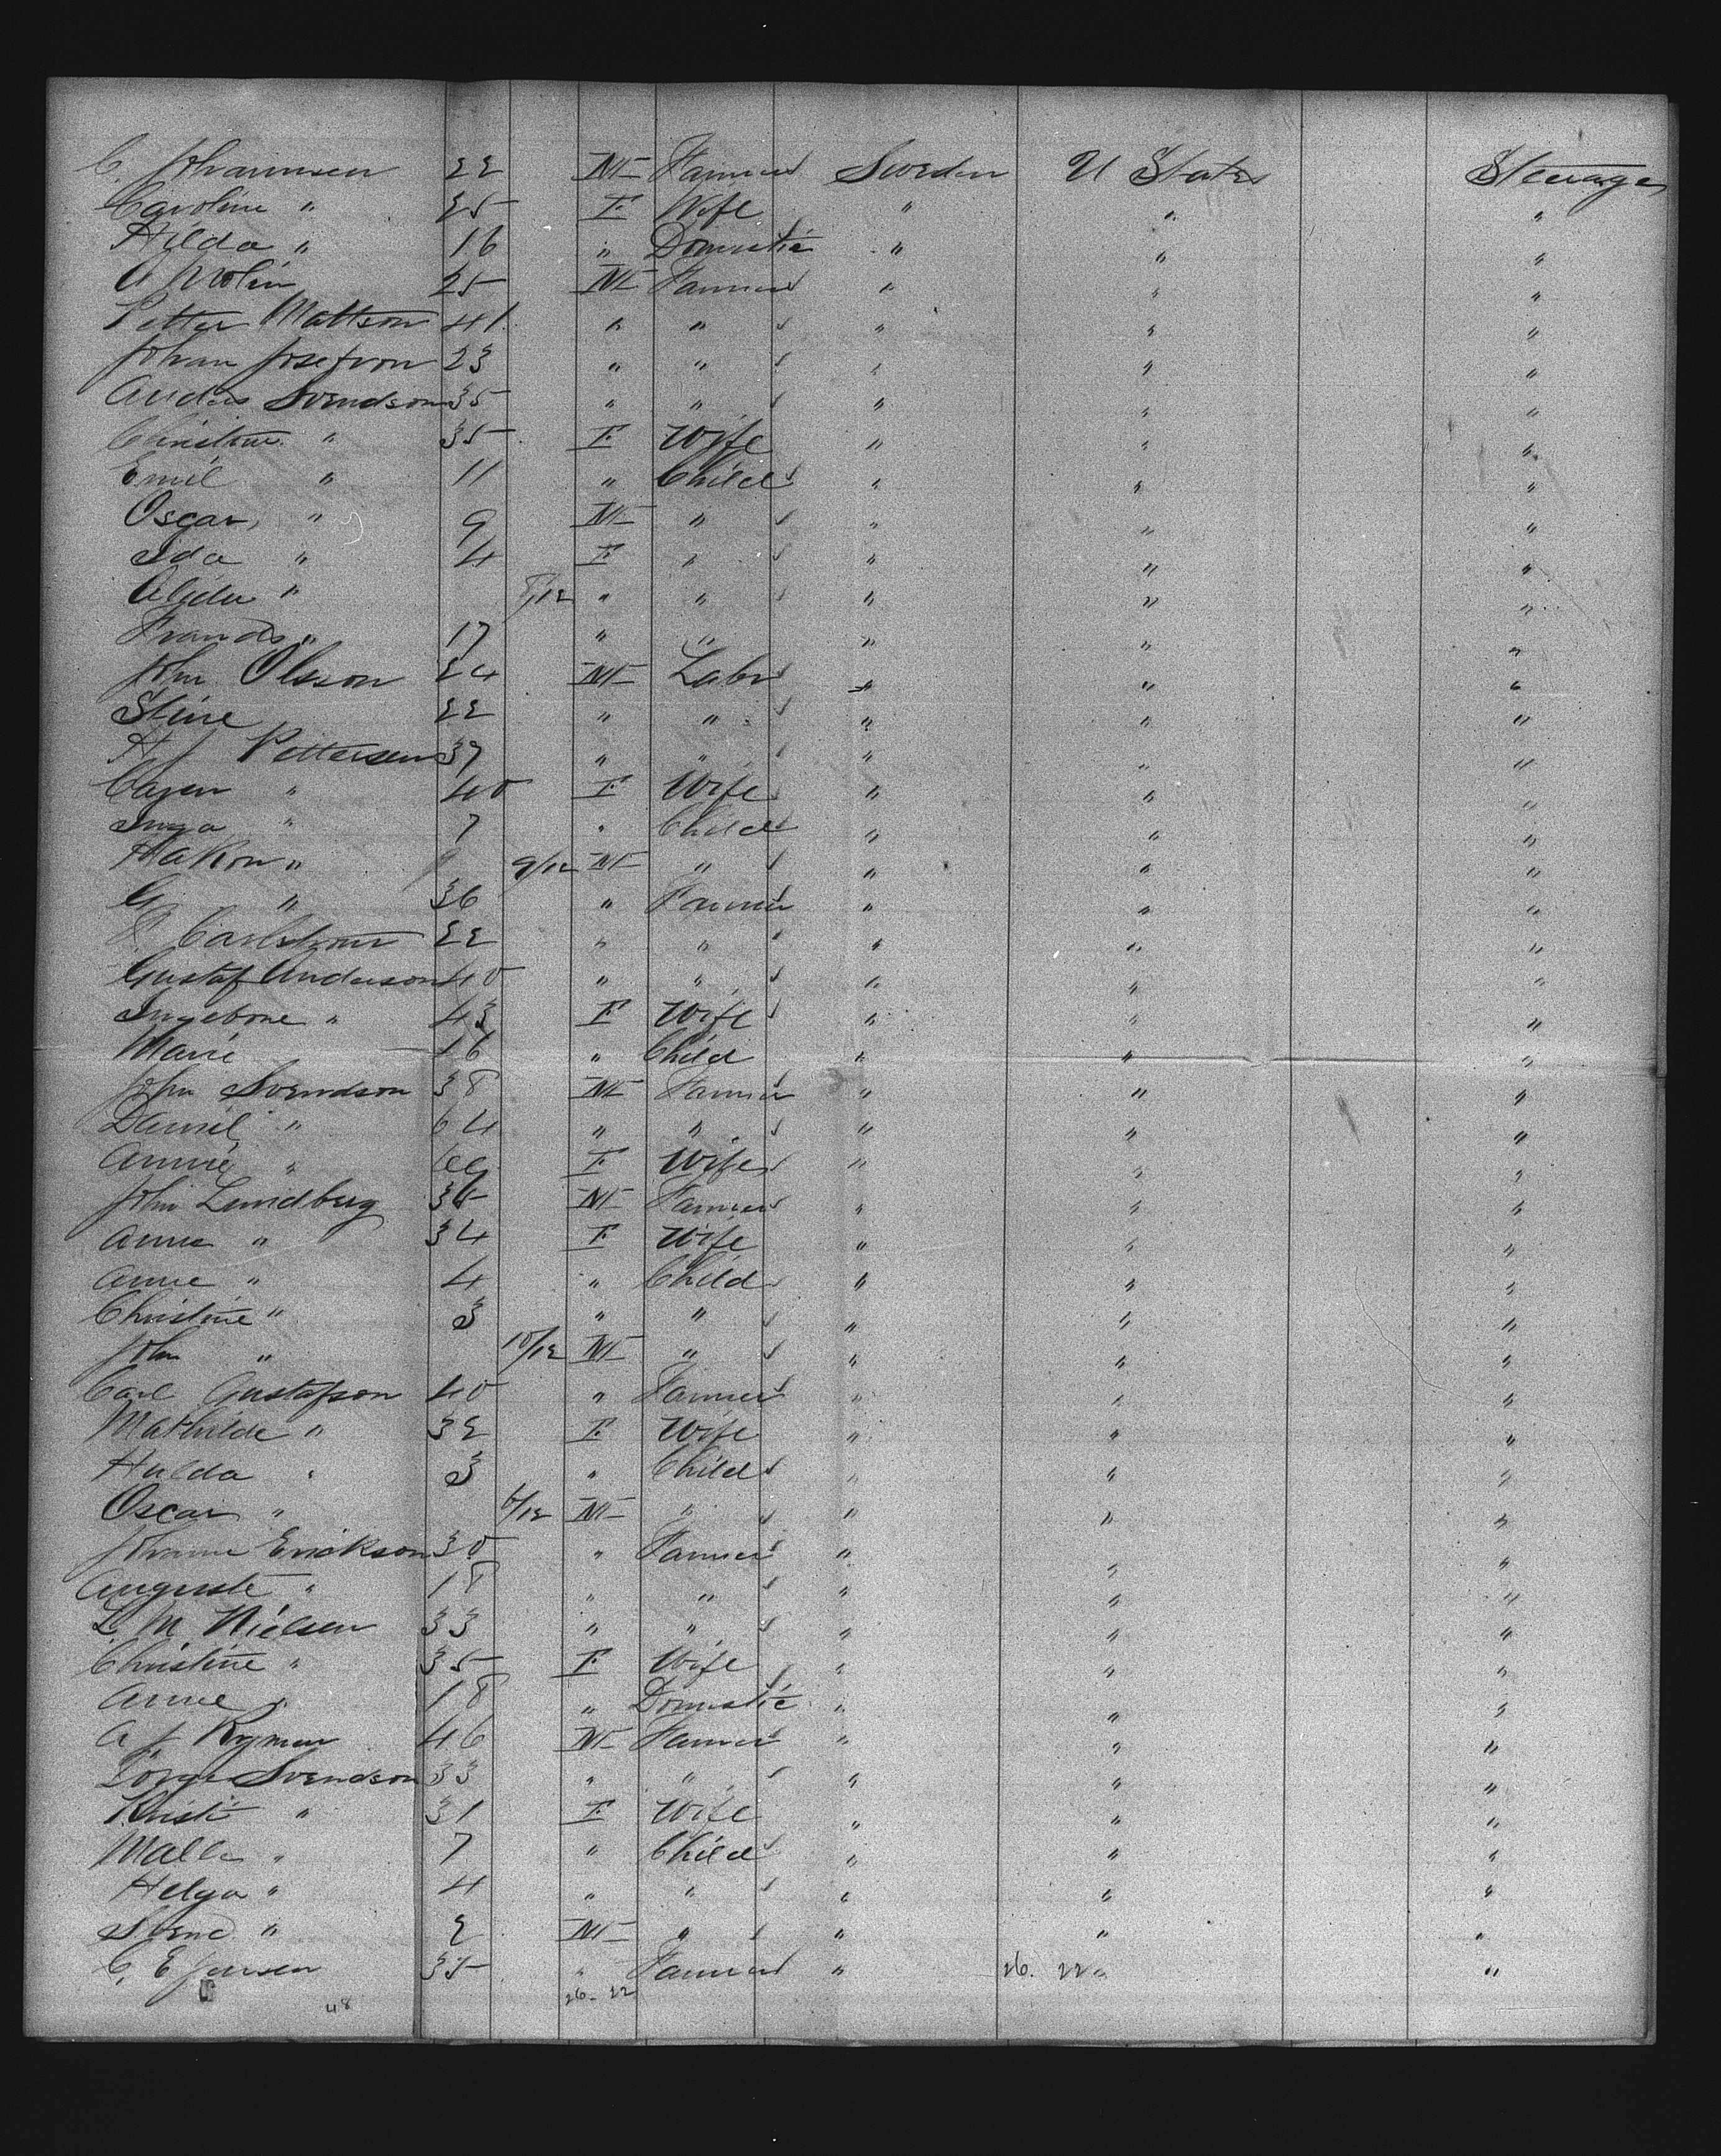 C. Johannsen 22 M Farmer Sweden U States Steerage
Caroline " 25 F Wife " " "
Hilda " 16 " Domestic " " "
A Molin 25 M Farmer " " "
Petter Mattson 41 " " " " "
Johan Josefson 23 " " " " "
Anders Svendson 35 " " " " "
Christine " 35 F Wife " " "
Emil " 11 " Child " " "
Oscar " 9 M " " " "
Ida " 4 F " " " "
Alida " 8/12 " " " " "
Francis " 17 " " " " "
John Olsson 24 M Labr " " "
Stine 22 " " " " "
H J Pettersen 37 " " " " "
Caren " 40 F Wife " " "
Inga " 7 " Child " " "
Hakon " 9/12 M " " " "
G " 36 " Farmer " " "
P. Carlstrom 22 " " " " "
Gustaf Anderson 40 " " " " "
Ingebore " 43 F Wife " " "
Marie 16 " Child " " "
John Svendson 38 M Farmer " " "
Daniel " 64 " " " " "
Annie " 69 F Wife " " "
John Lundberg 35 M Farmer " " "
Anna " 34 F Wife " " "
Anne " 4 " Child " " "
Christine " 3 " " " " "
John " 10/12 M " " " "
Carl Gustafson 40 " Farmer " " "
Mathilde " 32 F Wife " " "
Hulda " 3 " Child " " "
Oscar " 6/12 M " " " "
Johanne Erickson 30 " Farmer " " "
Auguste " 18 " " " " "
L. M Nielsen 33 " " " " "
Christine " 35 F Wife " " "
Anne " 18 " Domestic " " "
A J Ryman 46 M Farmer " " "
Svendson 33 " " " " "
Kristi " 31 F Wife " " "
Malla " 7 " Child " " "
Helga " 4 " " " " "
Svend " 2 M " " " "
C. E Jensen 35 " Farmer " 26. 22 " "
48 26-22